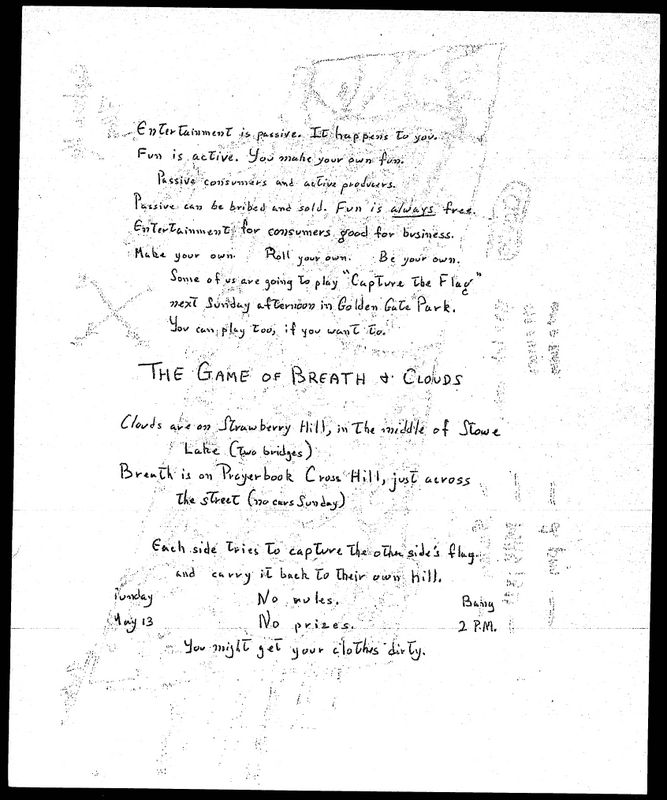 Entertainment is passive. It happens to you.
Fun is active. You make your own fun.
Passive consumers and active producers.
Passive can be bribed and sold. Fun is always free.
Entertainment for consumers good for business.
Make your own. Roll your own. Be your own.
Some of us are going to play "Capture the Flag"
next Sunday afternoon in Golden Gate Park.
You can play too, if you want to.
THE GAME OF BREATH & CLOUDS
Clouds are on Strawberry Hill, in the middle of Stowe
Lake (two bridges)
Breath is on Prayerbook Cross Hill, just across
the street (no cars Sunday)
Each side tries to capture the other side's flag
and carry it back to their own hill.
Sunday No rules. Bang
May 13 No prizes. 2 P.M.
You might get your clothes dirty.